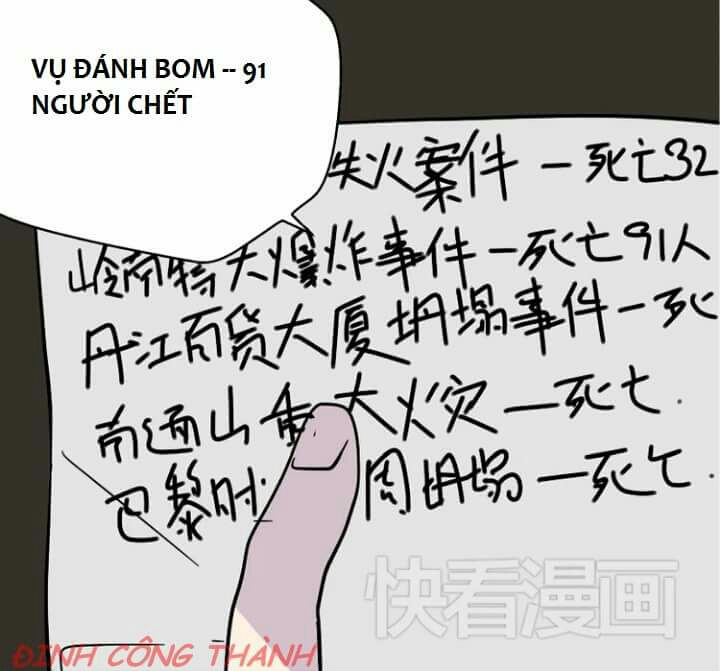 VỤ ĐÁNH BOM -- 91
NGƯỜI CHẾT
失火案件一死亡32
岭南特大爆炸事件一死亡91人
丹江百货大厦坍塌事件一死
南通山重大火灾一死亡
巴黎时 周坍塌一死亡
快看漫画
ĐINH CÔNG THÀNH